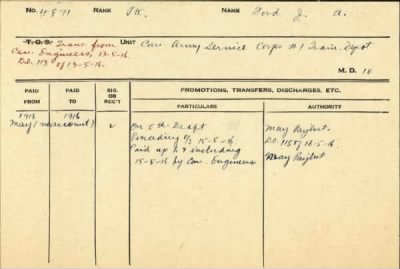 No. 4571 RANK Pte. NAME Ford J. A.
T.O.S. Trans. from Can. Engineers, 13-5-16. D.O. 113 of 13-5-16.
UNIT Can. Army Service Corps #1 Train. Depot
M. D. 10
PAID FROM
PAID TO
SIG. OR REC'T
PROMOTIONS, TRANSFERS, DISCHARGES, ETC.
PARTICULARS
AUTHORITY
1916 1916
May
On Dept
May Paylist.
Proceeding O/S 15-5-16.
D.O. 115 of 16-5-16.
Paid up to & including
May Paylist
15-5-16 by Can. Engineers